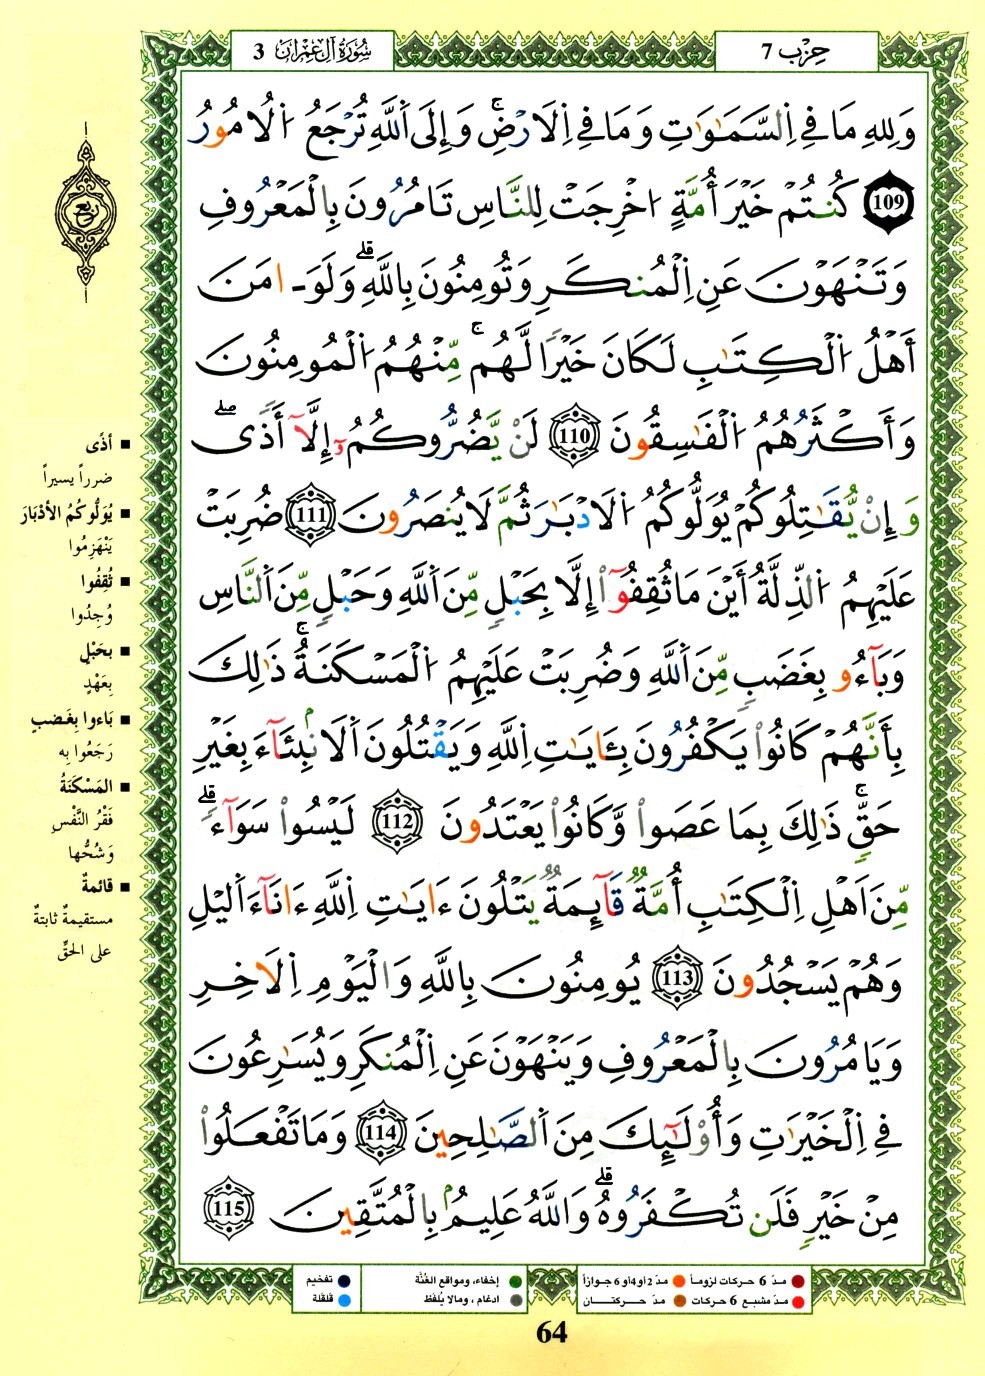 حِزْب 7
سُورَةُ آلِ عِمْرَان 3
وَلِلهِ مَا فِے اِ۬لسَّمَٰوَٰتِ وَمَا فِے اِ۬لَارْضِۖ وَإِلَى اَ۬للَّهِ تُرْجَعُ اُ۬لُامُورُ
109 كُنتُمْ خَيْرَ أُمَّةٍ اُخْرِجَتْ لِلنَّاسِ تَامُرُونَ بِالْمَعْرُوفِ
وَتَنْهَوْنَ عَنِ اِ۬لْمُنكَرِ وَتُومِنُونَ بِاللَّهِۗ وَلَوَ ـ امَنَ
أَهْلُ اُ۬لْكِتَٰبِ لَكَانَ خَيْراٗ لَّهُمۚ مِّنْهُمُ اُ۬لْمُومِنُونَ
وَأَكْثَرُهُمُ اُ۬لْفَٰسِقُونَ 110 لَنْ يَّضُرُّوكُمُۥٓ إِلَّآ أَذىٗۖ
وَإِنْ يُّقَٰتِلُوكُمْ يُوَلُّوكُمُ اُ۬لَادْبَٰرَ ثُمَّ لَا يُنصَرُونَ 111 ضُرِبَتْ
عَلَيْهِمُ اُ۬لذِّلَّةُ أَيْنَ مَا ثُقِفُوٓاْ إِلَّا بِحَبْلٖ مِّنَ اَ۬للَّهِ وَحَبْلٖ مِّنَ اَ۬لنَّاسِ
وَبَآءُو بِغَضَبٖ مِّنَ اَ۬للَّهِ وَضُرِبَتْ عَلَيْهِمُ اُ۬لْمَسْكَنَةُۚ ذَٰلِكَ
بِأَنَّهُمْ كَانُواْ يَكْفُرُونَ بِـَٔايَٰتِ اِ۬للَّهِ وَيَقْتُلُونَ اَ۬لَانۢبِئَآءَ بِغَيْرِ
حَقّٖۚ ذَٰلِكَ بِمَا عَصَواْ وَّكَانُواْ يَعْتَدُونَ 112 لَيْسُواْ سَوَآءٗۗ
مِّنَ اَهْلِ اِ۬لْكِتَٰبِ أُمَّةٞ قَآئِمَةٞ يَتْلُونَ ءَايَٰتِ اِ۬للَّهِ ءَانَآءَ اَ۬ليْلِ
وَهُمْ يَسْجُدُونَ 113 يُومِنُونَ بِاللَّهِ وَالْيَوْمِ اِ۬لَاخِرِ
وَيَامُرُونَ بِالْمَعْرُوفِ وَيَنْهَوْنَ عَنِ اِ۬لْمُنكَرِ وَيُسَٰرِعُونَ
فِے اِ۬لْخَيْرَٰتِ وَأُوْلَٰٓئِكَ مِنَ اَ۬لصَّٰلِحِينَ 114 وَمَا تَفْعَلُواْ
مِنْ خَيْرٖ فَلَن تُكْفَرُوهُۗ وَاللَّهُ عَلِيمُۢ بِالْمُتَّقِينَ 115
ربع
■ أذًى
ضرراً يسيراً
■ يُوَلُّوكُمُ الأَدْبَارَ
يَنْهَزِمُوا
■ ثُقِفُوا
وُجِدُوا
■ بحَبْلٍ
بِعَهْدٍ
■ بَاءوا بِغَضبٍ
رَجَعُوا بِه
■ المَسْكَنَةُ
فَقْرُ النَّفْسِ
وَشُحُّها
■ قائمةٌ
مستقيمةٌ ثابتةٌ
على الحَقِّ
مدّ 6 حركات لزوماً مدّ 2 أو 4 أو 6 جوازاً
مدّ مشبع 6 حركات مدّ حركتان
إخفاء، ومواقع الغُنَّة
ادغام ، ومالا يُلفظ
تفخيم
قلقلة
64